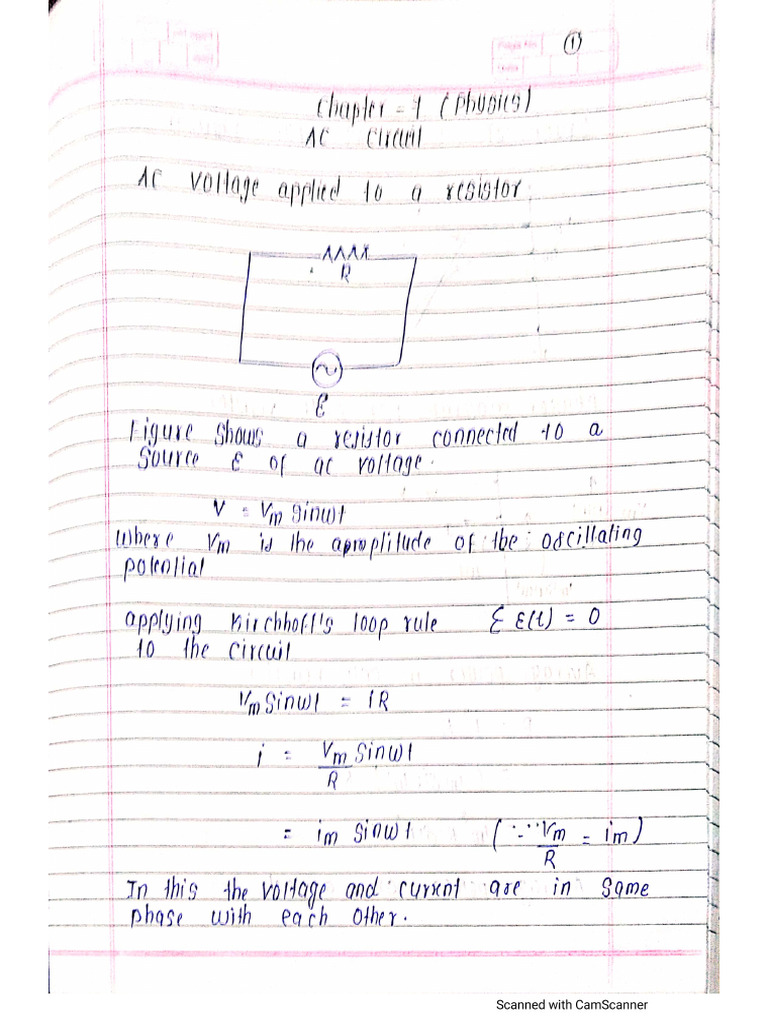 ①
Chapter - 7 (Physics)
AC Circuit
AC Voltage applied to a resistor
R
ε
Figure shows a resistor connected to a
source ε of ac voltage.
V = Vm sinwt
where Vm is the amplitude of the oscillating
potential
applying Kirchhoff's loop rule Σ ε(t) = 0
to the circuit
Vm sinwt = iR
i = Vm sinwt
R
= im sinwt (∵ Vm = im)
R
In this the voltage and current are in same
phase with each other.
Scanned with CamScanner